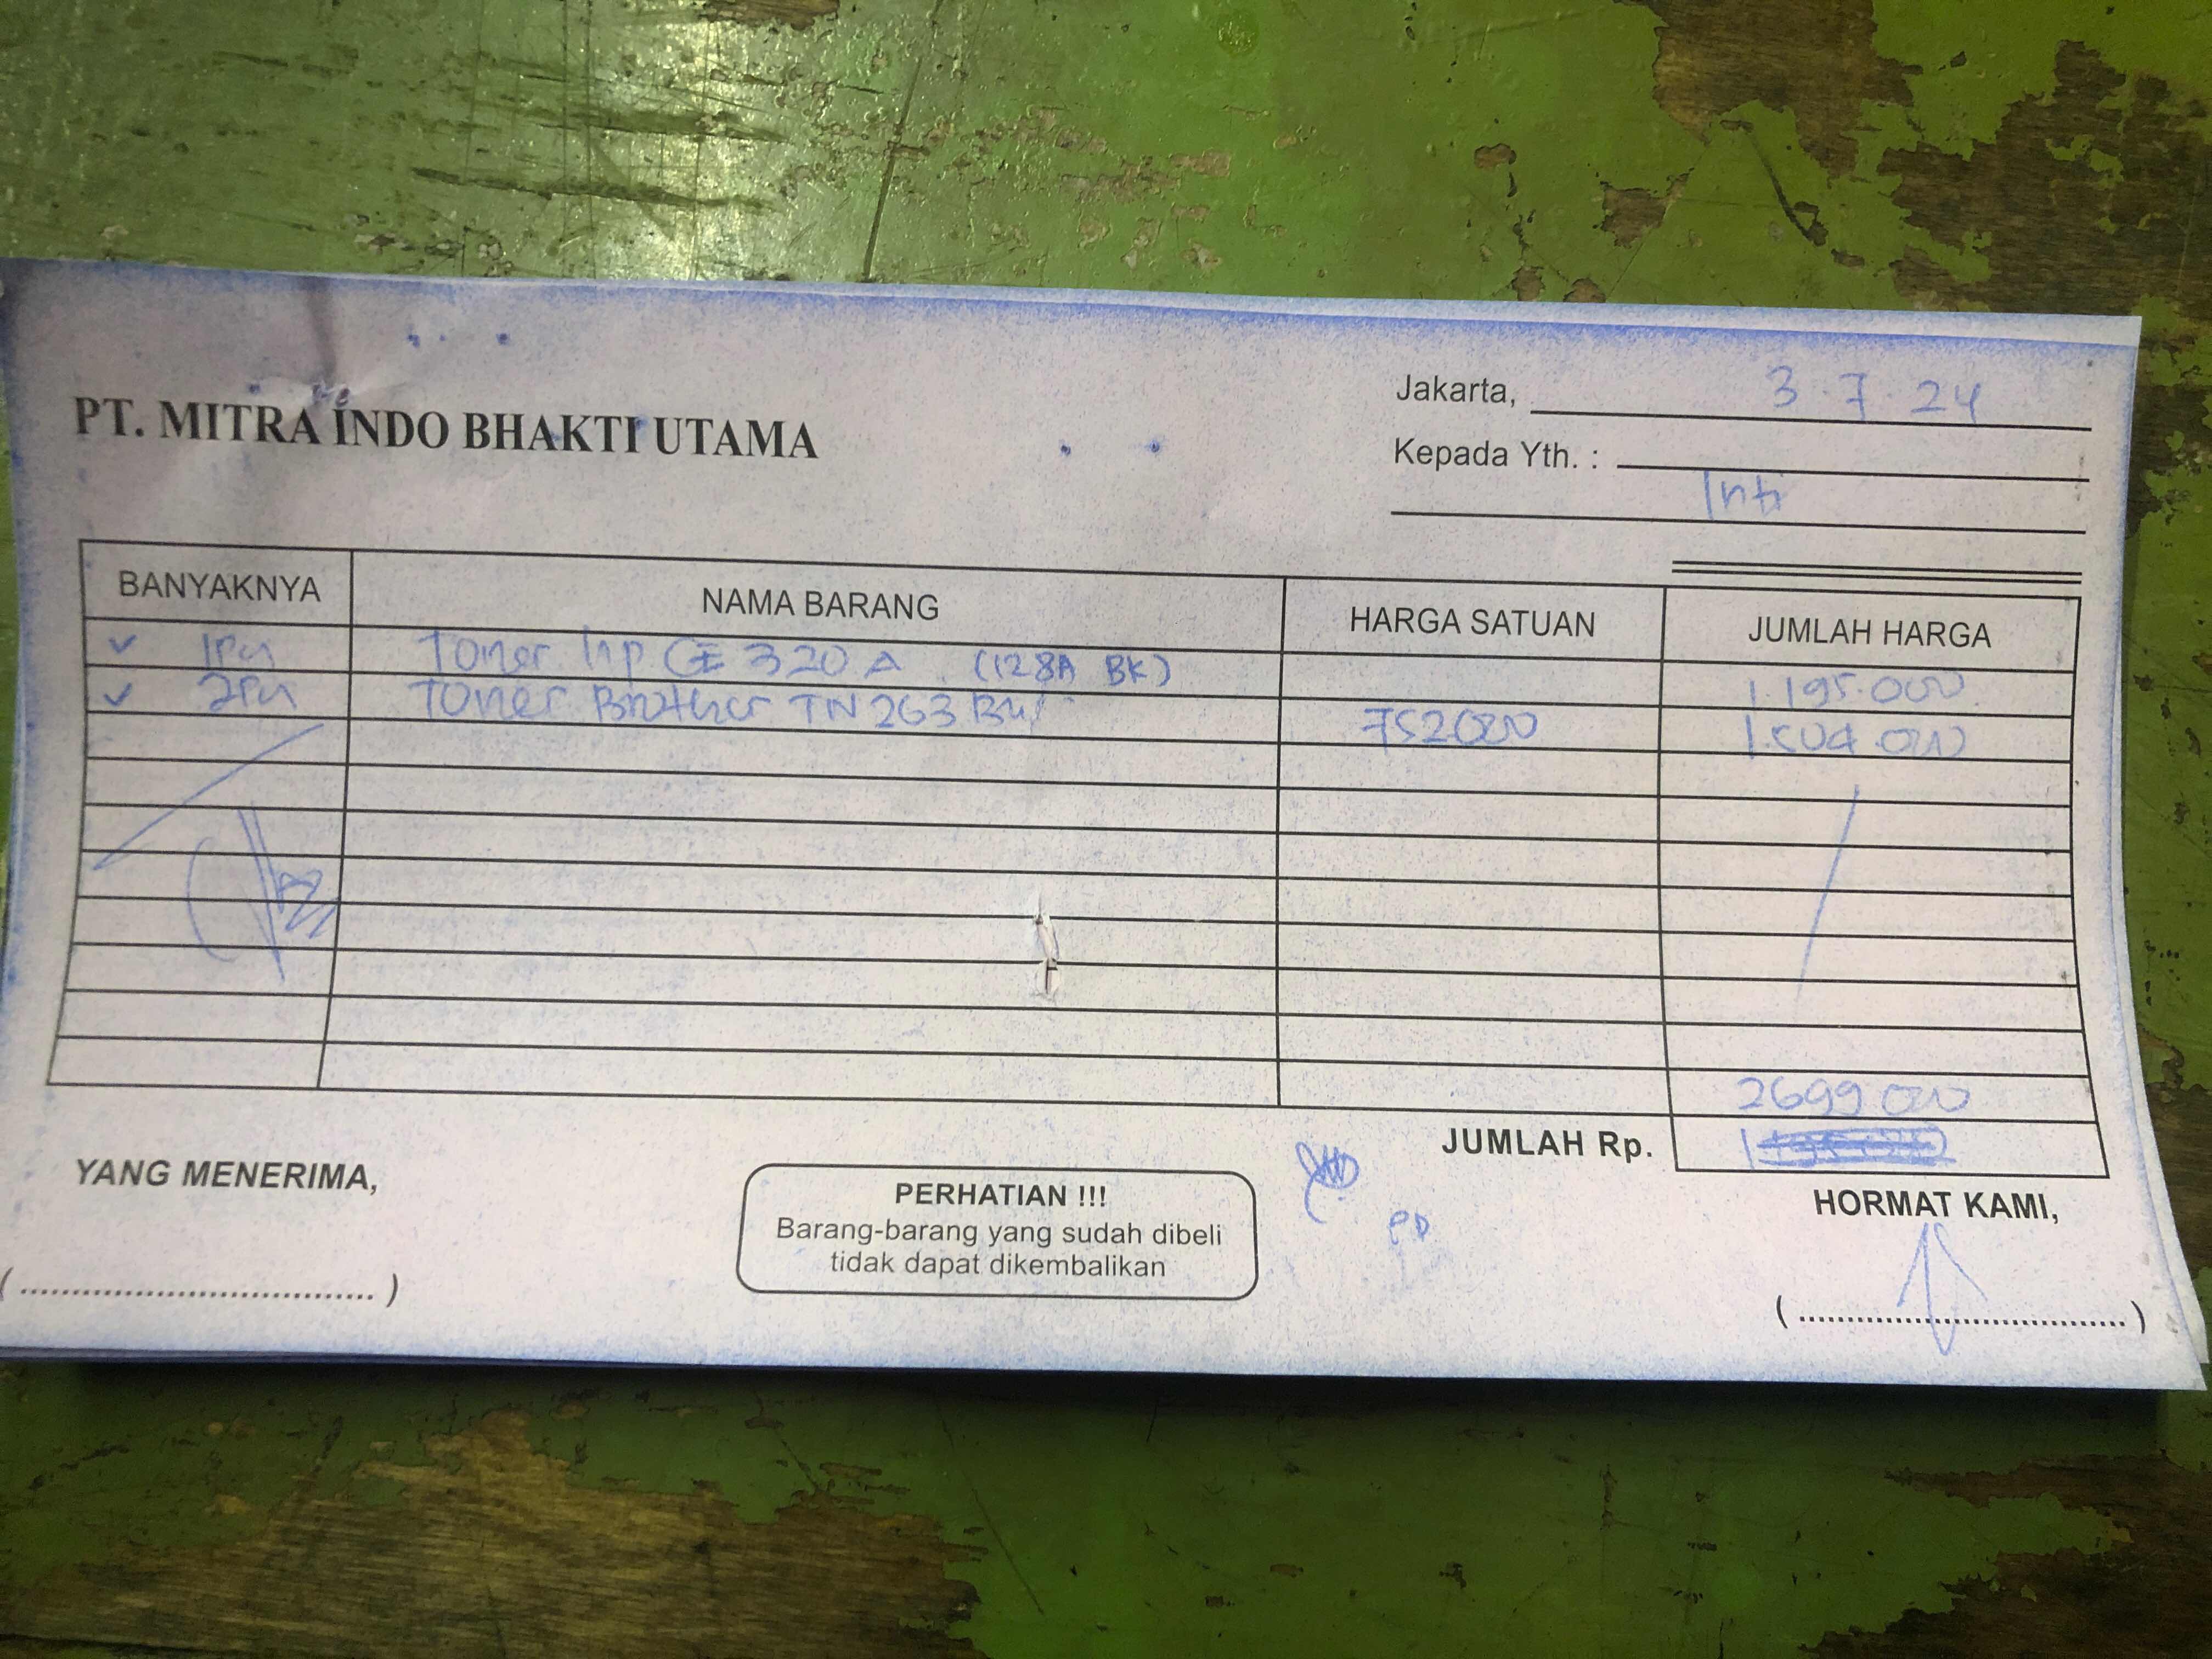 PT. MITRA INDO BHAKTI UTAMA
Jakarta, 3.7.24
Kepada Yth. :
Inti
BANYAKNYA NAMA BARANG HARGA SATUAN JUMLAH HARGA
✓ 1 Toner Hp CE 320 A (128A BK) 1.195.000
✓ 2 Toner Brother TN 263 752000 1.504.000
2699 000
JUMLAH Rp.
YANG MENERIMA,
(...................................)
PERHATIAN !!!
Barang-barang yang sudah dibeli
tidak dapat dikembalikan
HORMAT KAMI,
(...................................)